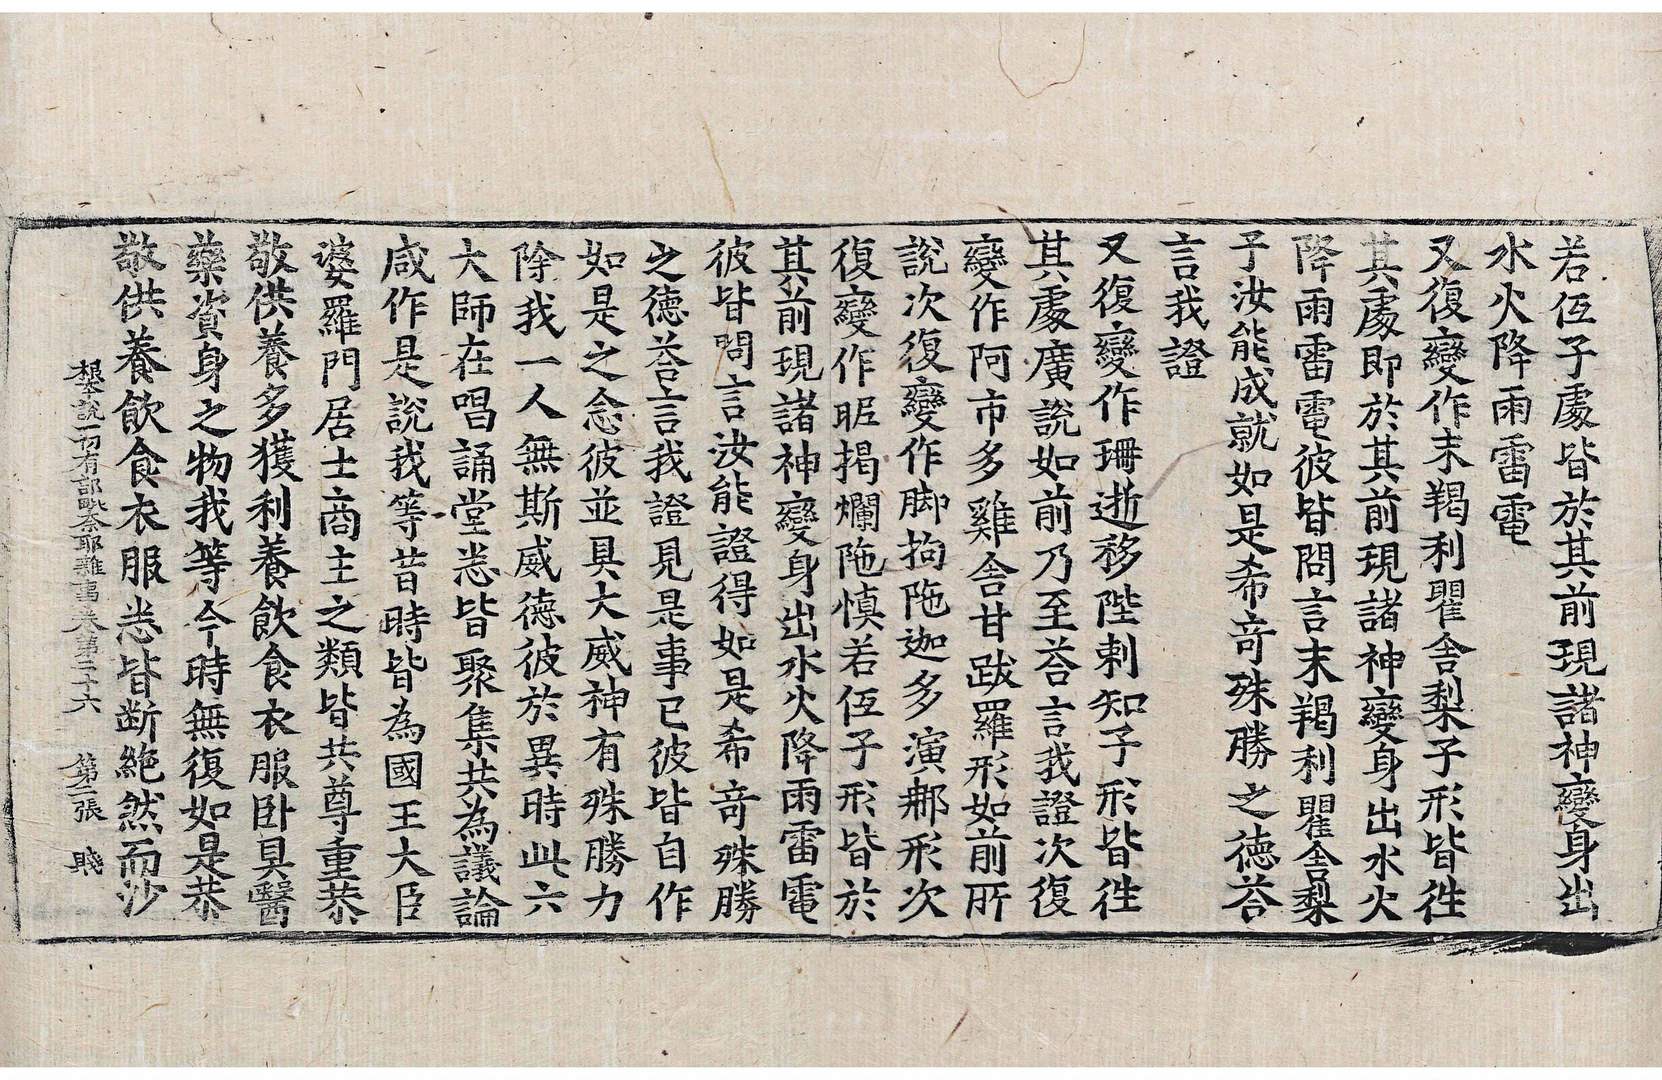 若㐌子處皆於其前現諸神變身出
水火降雨雷電
又復變作末羯利瞿舍梨子形皆徃
其處即於其前現諸神變身出水火
降雨雷電彼皆問言末羯利瞿舍梨
子汝能成就如是希奇殊勝之德荅
言我證
又復變作珊逝移陛剌知子形皆徃
其處廣說如前乃至荅言我證次復
變作阿市多雞舍甘跋羅形如前所
說次復變作脚拘陁迦多演郍形次
復變作昵揭爛陁慎若㐌子形皆於
其前現諸神變身出水火降雨雷電
彼皆問言汝能證得如是希奇殊勝
之德荅言我證見是事已彼皆自作
如是之念彼並具大威神有殊勝力
除我一人無斯威德彼於異時此六
大師在唱誦堂悉皆聚集共為議論
咸作是說我等昔時皆為國王大臣
婆羅門居士商主之類皆共尊重恭
敬供養多獲利養飲食衣服卧具醫
藥資身之物我等今時無復如是恭
敬供養飲食衣服悉皆断絶然而沙
根本說一切有部毗奈耶雜事卷第二十六 第二張 賤